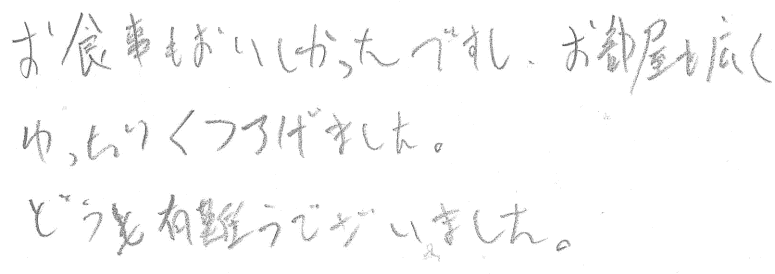 お食事もおいしかったですし、お部屋も広く
ゆったりくつろげました。
どうも有難うございました。